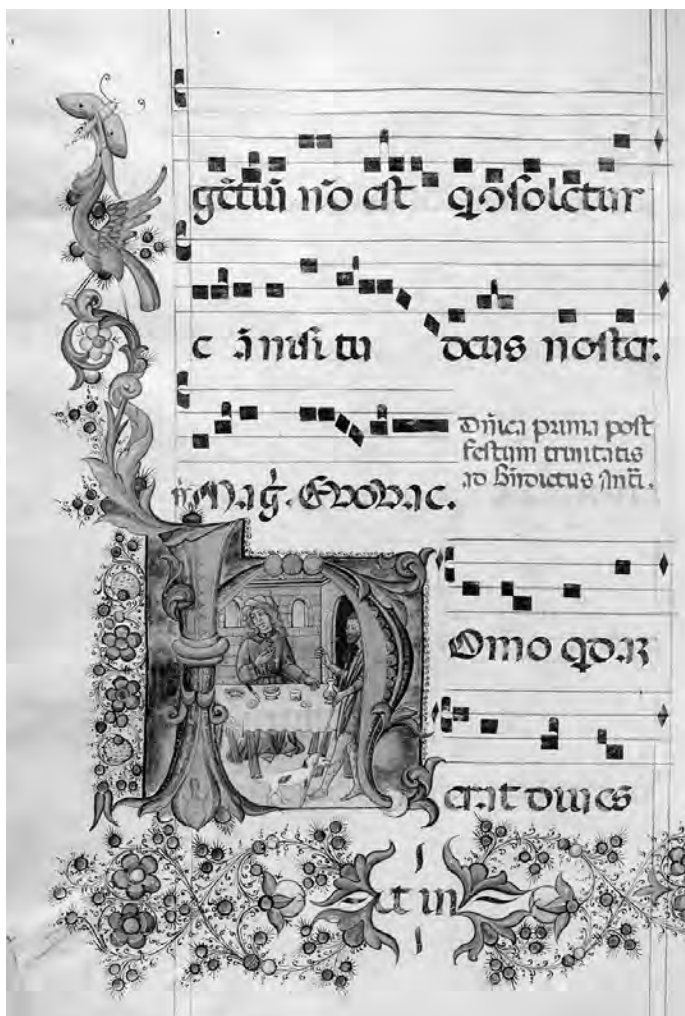 gẽtiũ nõ est q ↄsoletur
e ã nisi tu deus noster.
Dñica prima post
festum trinitatis
ad Bñdictus Anti.
Mag̃. Evovae.
HOmo qdaʒ
erat diues
et in